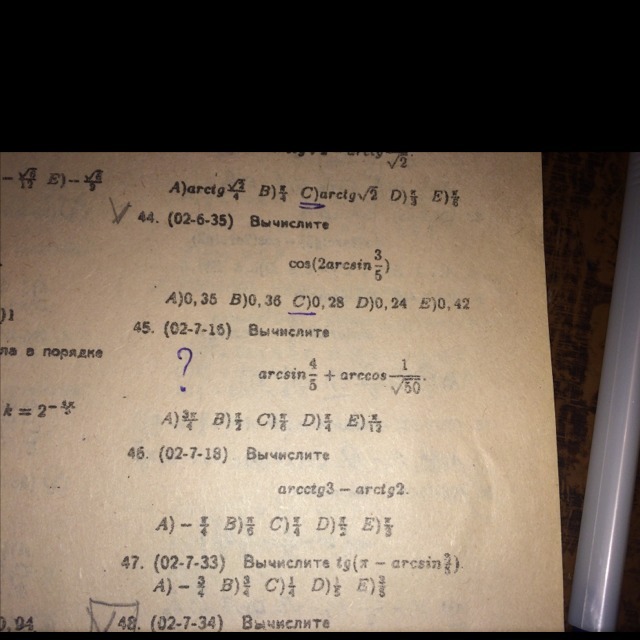 − √6/12 E) − √6/9
√2
A)arctg √2/4 B) π/4 C)arctg√2 D) π/3 E) π/6
44. (02-6-35) Вычислите
cos(2arcsin 3/5)
A)0,35 B)0,36 C)0,28 D)0,24 E)0,42
)1
45. (02-7-16) Вычислите
ла в порядке
?
arcsin 4/5 + arccos 1/√50.
k = 2
A) 3π/4 B) π/2 C) π/6 D) π/4 E) π/12
46. (02-7-18) Вычислите
arcctg3 − arctg2.
A) − π/4 B) π/6 C) π/4 D) π/2 E) π/3
47. (02-7-33) Вычислите tg(π − arcsin 3/5).
A) − 3/4 B) 3/4 C) 1/4 D) 1/5 E) 3/5
0,94
48. (02-7-34) Вычислите